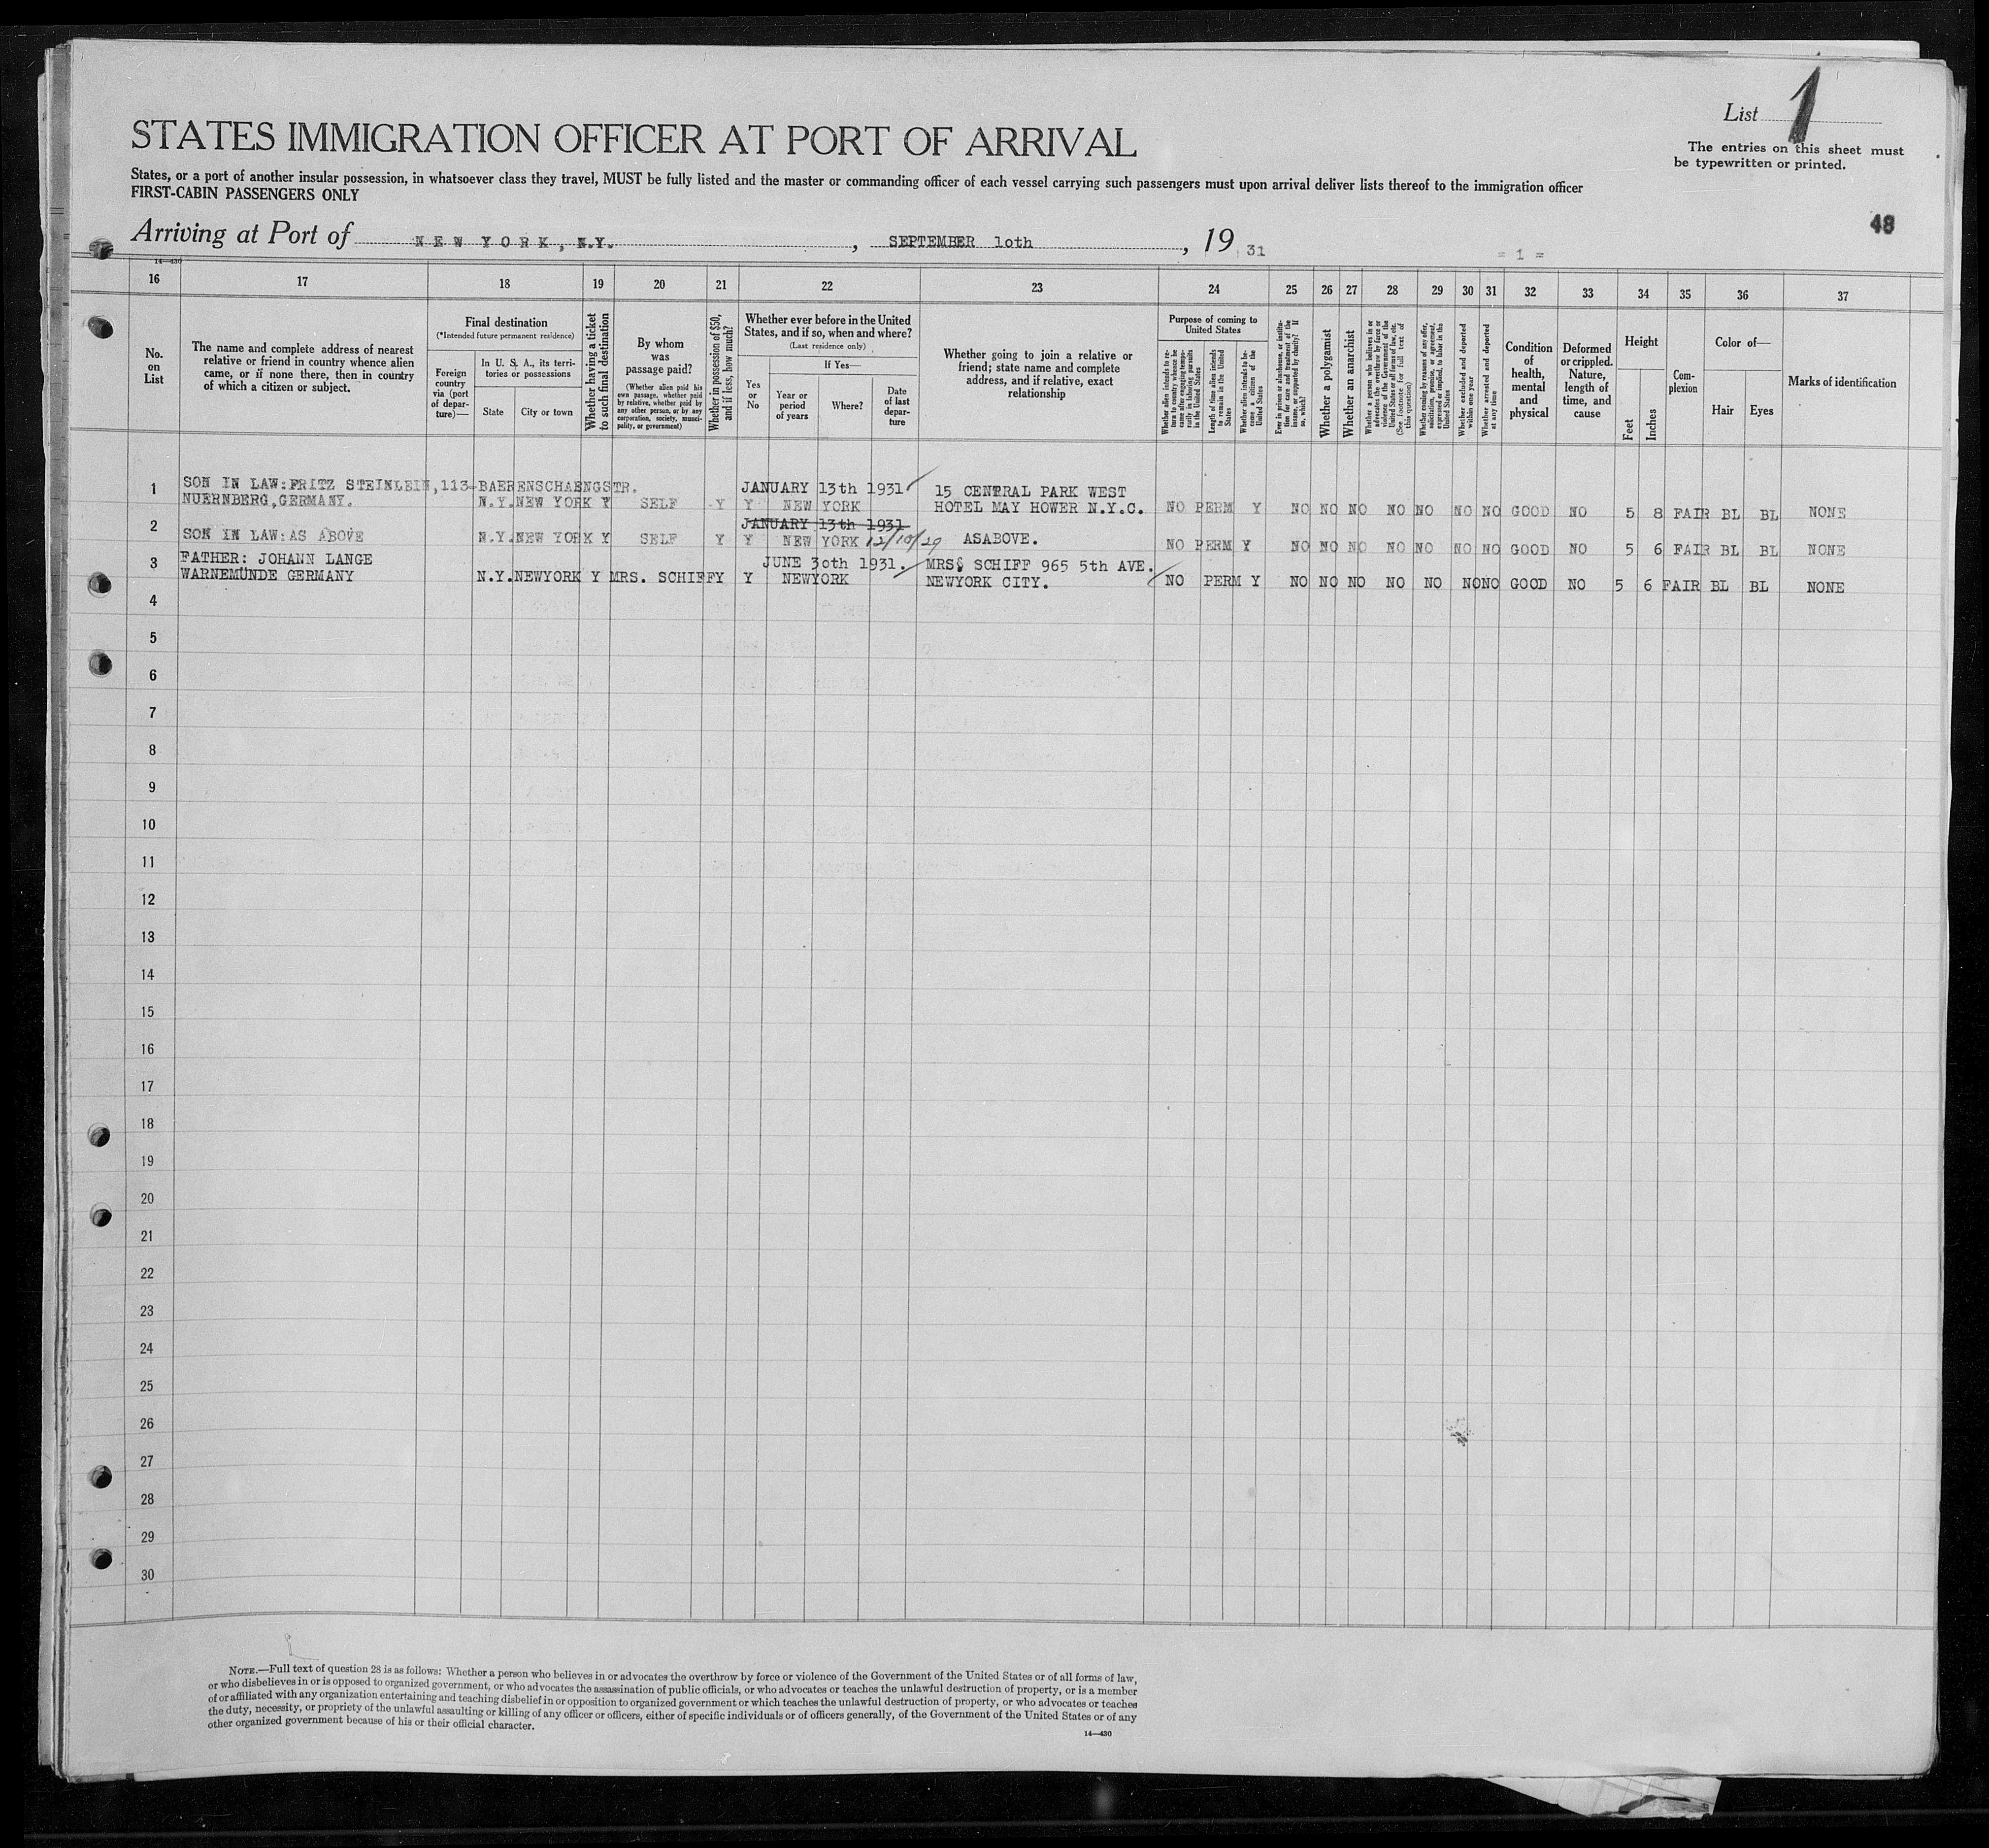 List 1
The entries on this sheet must
be typewritten or printed.
STATES IMMIGRATION OFFICER AT PORT OF ARRIVAL
States, or a port of another insular possession, in whatsoever class they travel, MUST be fully listed and the master or commanding officer of each vessel carrying such passengers must upon arrival deliver lists thereof to the immigration officer
FIRST-CABIN PASSENGERS ONLY
48
Arriving at Port of NEW YORK, N.Y. , SEPTEMBER 1oth , 19 31
= 1 =
14—430
16 17 18 19 20 21 22 23 24 25 26 27 28 29 30 31 32 33 34 35 36 37
No.
on
List
The name and complete address of nearest
relative or friend in country whence alien
came, or if none there, then in country
of which a citizen or subject.
Final destination
(*Intended future permanent residence)
Foreign
country
via (port
of depar-
ture)—
In U. S. A., its terri-
tories or possessions
State City or town
Whether having a ticket
to such final destination
By whom
was
passage paid?
(Whether alien paid his
own passage, whether paid
by relative, whether paid by
any other person, or by any
corporation, society, munici-
pality, or government)
Whether in possession of $50,
and if less, how much?
Whether ever before in the United
States, and if so, when and where?
(Last residence only)
Yes
or
No
If Yes—
Year or
period
of years
Where?
Date
of last
depar-
ture
Whether going to join a relative or
friend; state name and complete
address, and if relative, exact
relationship
Purpose of coming to
United States
Whether alien intends to re-
turn to country whence he
came after engaging tempo-
rarily in laboring pursuits
in the United States
Length of time alien intends
to remain in the United
States
Whether alien intends to be-
come a citizen of the
United States
Ever in prison or almshouse, or institu-
tion for care and treatment of the
insane, or supported by charity? If
so, which?
Whether a polygamist
Whether an anarchist
Whether a person who believes in or
advocates the overthrow by force or
violence of the Government of the
United States or all forms of law, etc.
(See footnote for full text of
this question)
Whether coming by reasons of any offer,
solicitation, promise, or agreement,
expressed or implied, to labor in the
United States
Whether excluded and deported
within one year
Whether arrested and deported
at any time
Condition
of
health,
mental
and
physical
Deformed
or crippled.
Nature,
length of
time, and
cause
Height
Feet
Inches
Com-
plexion
Color of—
Hair Eyes
Marks of identification
1 SON IN LAW:FRITZ STEINLEIN,113-BAERENSCHAENGSTR. JANUARY 13th 1931 15 CENTRAL PARK WEST
NUERNBERG,GERMANY. N.Y. NEW YORK Y SELF Y Y NEW YORK HOTEL MAY HOWER N.Y.C. NO PERM Y NO NO NO NO NO NO NO GOOD NO 5 8 FAIR BL BL NONE
2 JANUARY 13th 1931
SON IN LAW:AS ABOVE N.Y. NEW YORK Y SELF Y Y NEW YORK 12/10/29 ASABOVE. NO PERM Y NO NO NO NO NO NO NO GOOD NO 5 6 FAIR BL BL NONE
3 FATHER: JOHANN LANGE JUNE 3oth 1931. MRS. SCHIFF 965 5th AVE.
WARNEMÜNDE GERMANY N.Y. NEWYORK Y MRS. SCHIFF Y Y NEWYORK NEWYORK CITY. NO PERM Y NO NO NO NO NO NO NO GOOD NO 5 6 FAIR BL BL NONE
4
5
6
7
8
9
10
11
12
13
14
15
16
17
18
19
20
21
22
23
24
25
26
27
28
29
30
NOTE.—Full text of question 28 is as follows: Whether a person who believes in or advocates the overthrow by force or violence of the Government of the United States or of all forms of law,
or who disbelieves in or is opposed to organized government, or who advocates the assassination of public officials, or who advocates or teaches the unlawful destruction of property, or is a member
of or affiliated with any organization entertaining and teaching disbelief in or opposition to organized government or which teaches the unlawful destruction of property, or who advocates or teaches
the duty, necessity, or propriety of the unlawful assaulting or killing of any officer or officers, either of specific individuals or of officers generally, of the Government of the United States or of any
other organized government because of his or their official character.
14—430